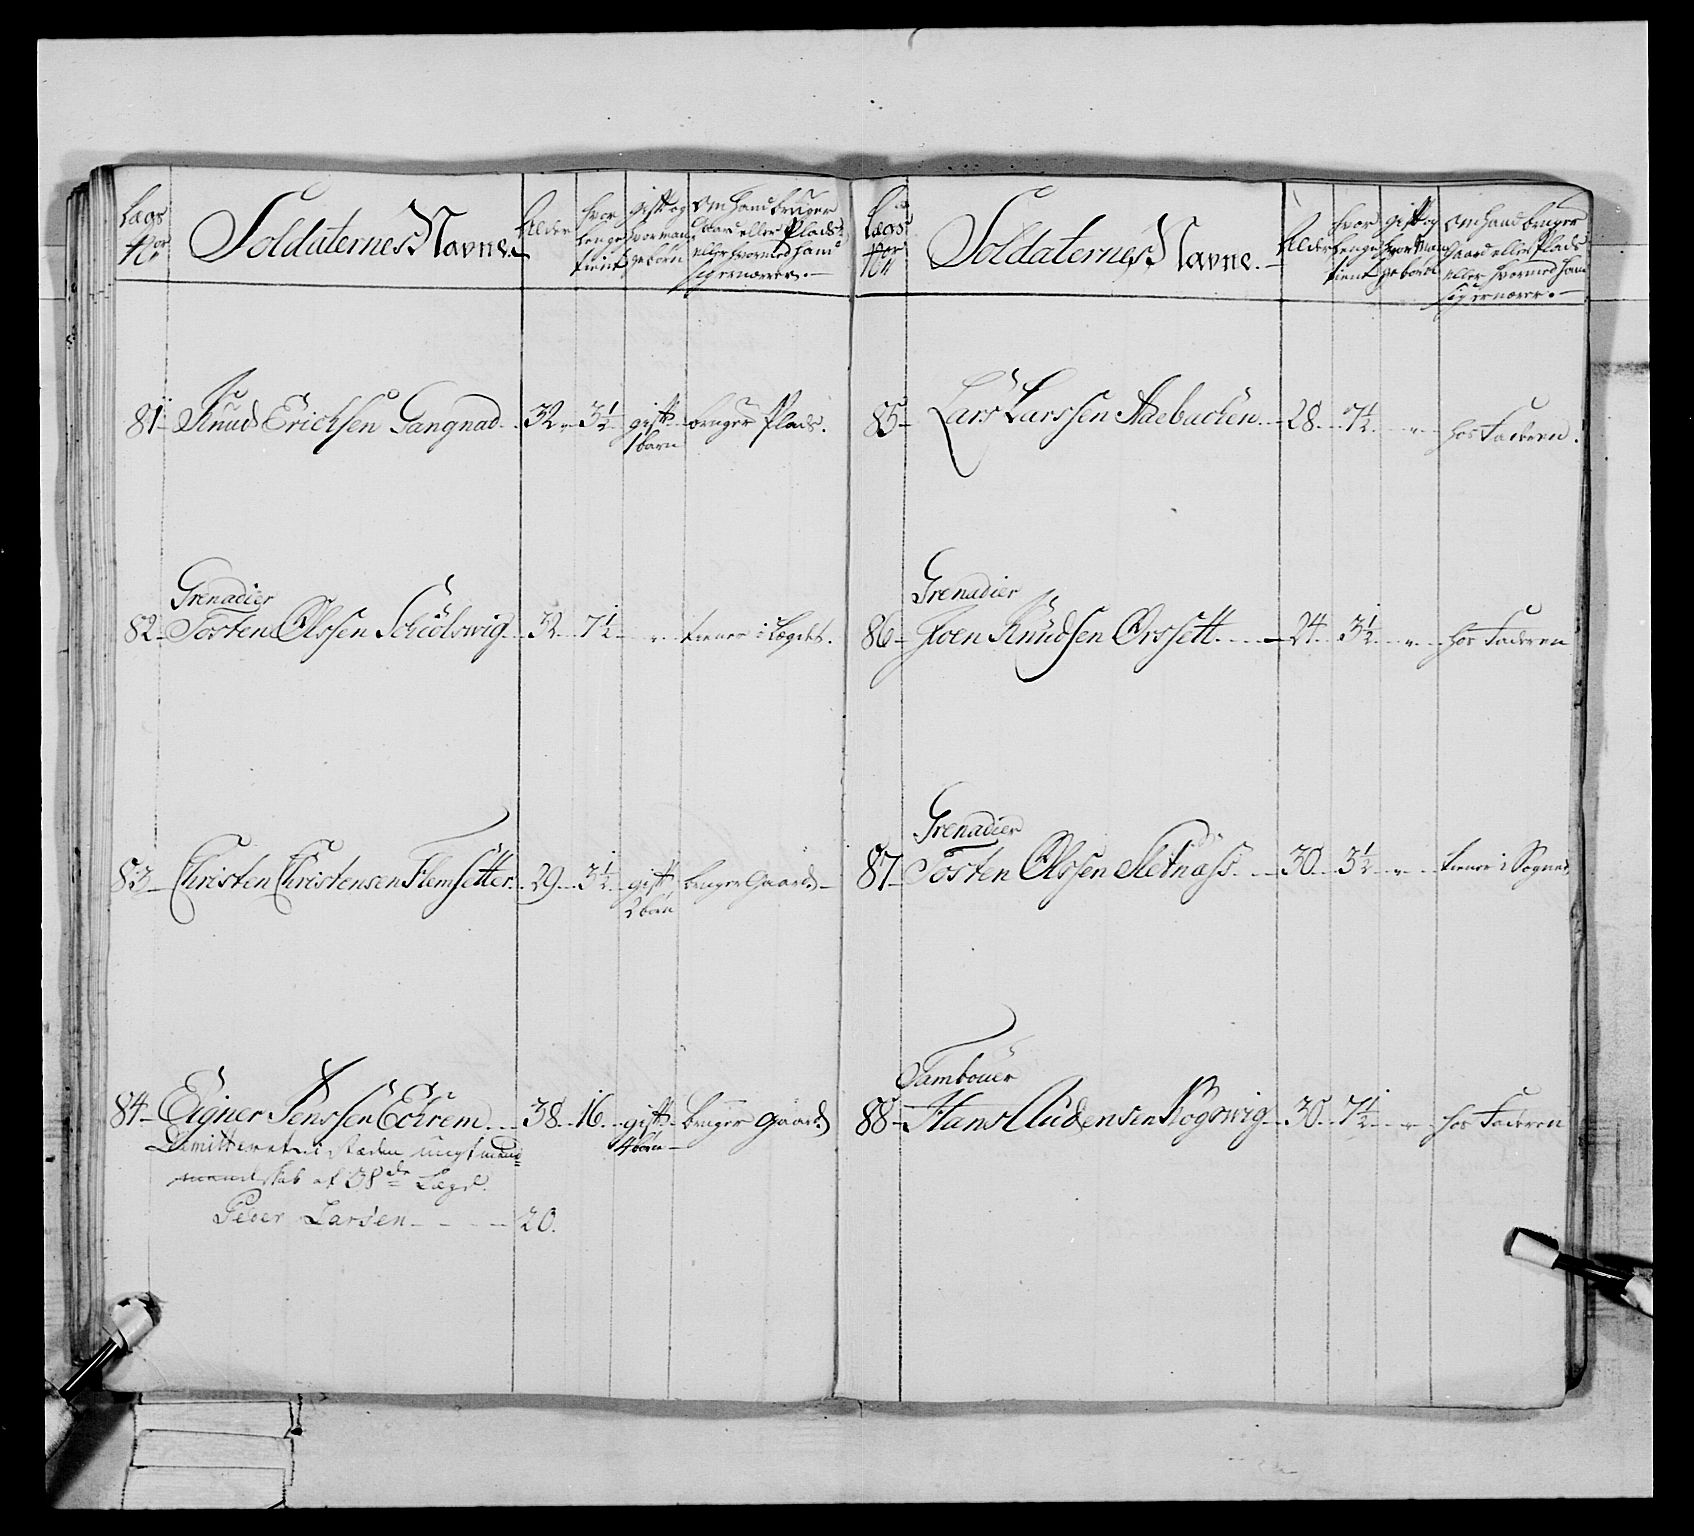 Lægs No: Soldaternes Navne. Alder hvor lenge tient gift og hvor mange børn Om hand bruger Gaard eller Plads eller hvormed hand sig ernærer.
81 Knud Ericksen Gangnad 32 3½ gift bruger Plads.
1 barn
Grenadier
82 Tosten Olssen 32 7½ " tiener i Lægdet.
83 Christen Christensen Flemsetter 29 3½ gift bruger Gaard
2 børn
84 Eigner Jenssen Echrem 38 16 gift bruger Gaard
4 børn
Dimitteret i stæden ungt mand
mandskab af 38de Lægd.
Peder Larsen 20.
Lægs No: Soldaternes Navne. Alder hvor lenge tient gift og hvor mange børn Om hand bruger Gaard eller Plads eller hvormed hand sig ernærer.
85 Lars Larssen Aaebacken 28 7½ " hos Faderen.
Grenadier
86 Joen Knudsen Orssett 24 3½ " hos Faderen
Grenadier
87 Tosten Olssen Setnæss 30 3½ " tiener i Sognet
Tambouer
88 Hans Audensen Kogswig 30 7½ " hos Faderen